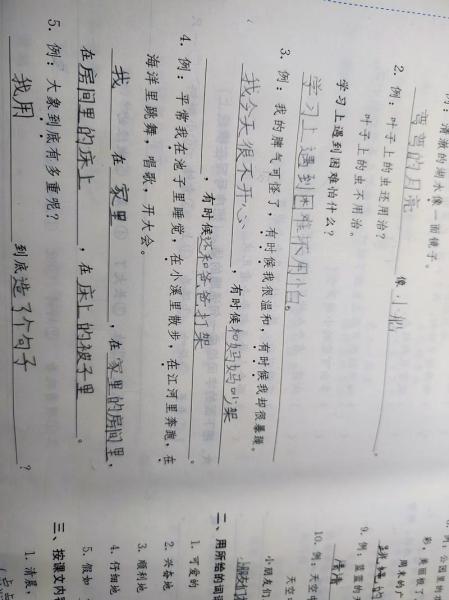 例：清澈的湖水像一面镜子。
弯弯的月亮 像 小船 。
2. 例：叶子上的虫还用治？
叶子上的虫不用治。
学习上遇到困难怕什么？
学习上遇到困难不用怕。
3. 例：我的脾气可怪了，有时候我很温和，有时候我却很暴躁。
我今天很不开心 ，有时候和妈妈吵架
，有时候还和爸爸打架 。
4. 例：平常我在池子里睡觉，在小溪里散步，在江河里奔跑，在
海洋里跳舞，唱歌，开大会。
我 在 家里 ，在家里的房间里，
在房间里的床上 ，在床上的被子里 。
5. 例：大象到底有多重呢？
我用 到底造了个句子 ？
例：公园里的
彩，美丽极了
周末的广
9. 例：蓝蓝的天
清清
10. 例：天空中
天空
小朋友们
朋友们
二、用所给的词语
1. 可爱的
2. 兴奋地
3. 顺利地
4. 仔细地
5. 假如
三、按课文内容
1. 清晨，